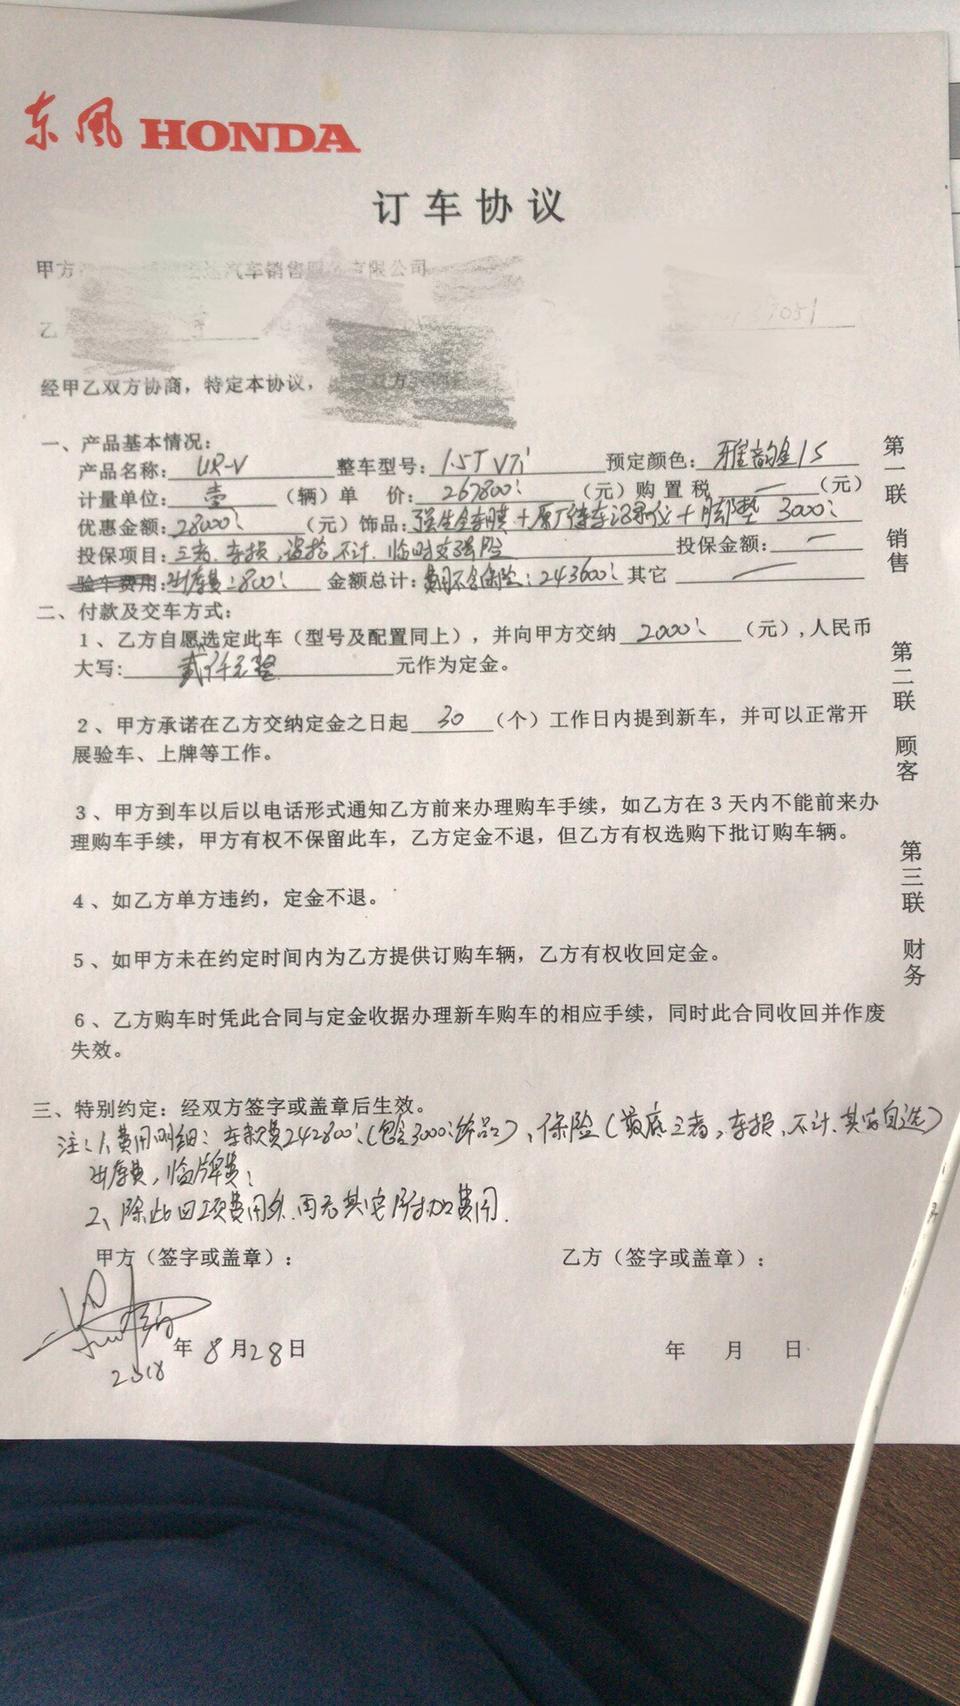 东風 HONDA
订车协议
甲方 汽车销售服务有限公司
乙 051
经甲乙双方协商，特定本协议，
一、产品基本情况：
产品名称：UR-V 整车型号：1.5T VTi 预定颜色：雅韵金/5
计量单位：壹（辆）单 价：267800（元）购置税 —（元）
优惠金额：28000（元）饰品：强生全车膜+原厂行车记录仪+脚垫 3000
投保项目：三者、车损，盗抢、不计、临时交强险 投保金额：—
验车费用：出库费：800 金额总计：费用不含保险：243600 其它 —
二、付款及交车方式：
1、乙方自愿选定此车（型号及配置同上），并向甲方交纳 2000（元），人民币
大写：贰仟元整 元作为定金。
2、甲方承诺在乙方交纳定金之日起 30（个）工作日内提到新车，并可以正常开
展验车、上牌等工作。
3、甲方到车以后以电话形式通知乙方前来办理购车手续，如乙方在3天内不能前来办
理购车手续，甲方有权不保留此车，乙方定金不退，但乙方有权选购下批订购车辆。
4、如乙方单方违约，定金不退。
5、如甲方未在约定时间内为乙方提供订购车辆，乙方有权收回定金。
6、乙方购车时凭此合同与定金收据办理新车购车的相应手续，同时此合同收回并作废
失效。
三、特别约定：经双方签字或盖章后生效。
注：1、费用明细：车款费242800（包含3000饰品）、保险（最底三者，车损，不计、其它自选）
出库费，临牌费；
2、除此四项费用外，再无其它附加费用.
甲方（签字或盖章）： 乙方（签字或盖章）：
2018年8月28日 年 月 日
第一联 销售
第二联 顾客
第三联 财务